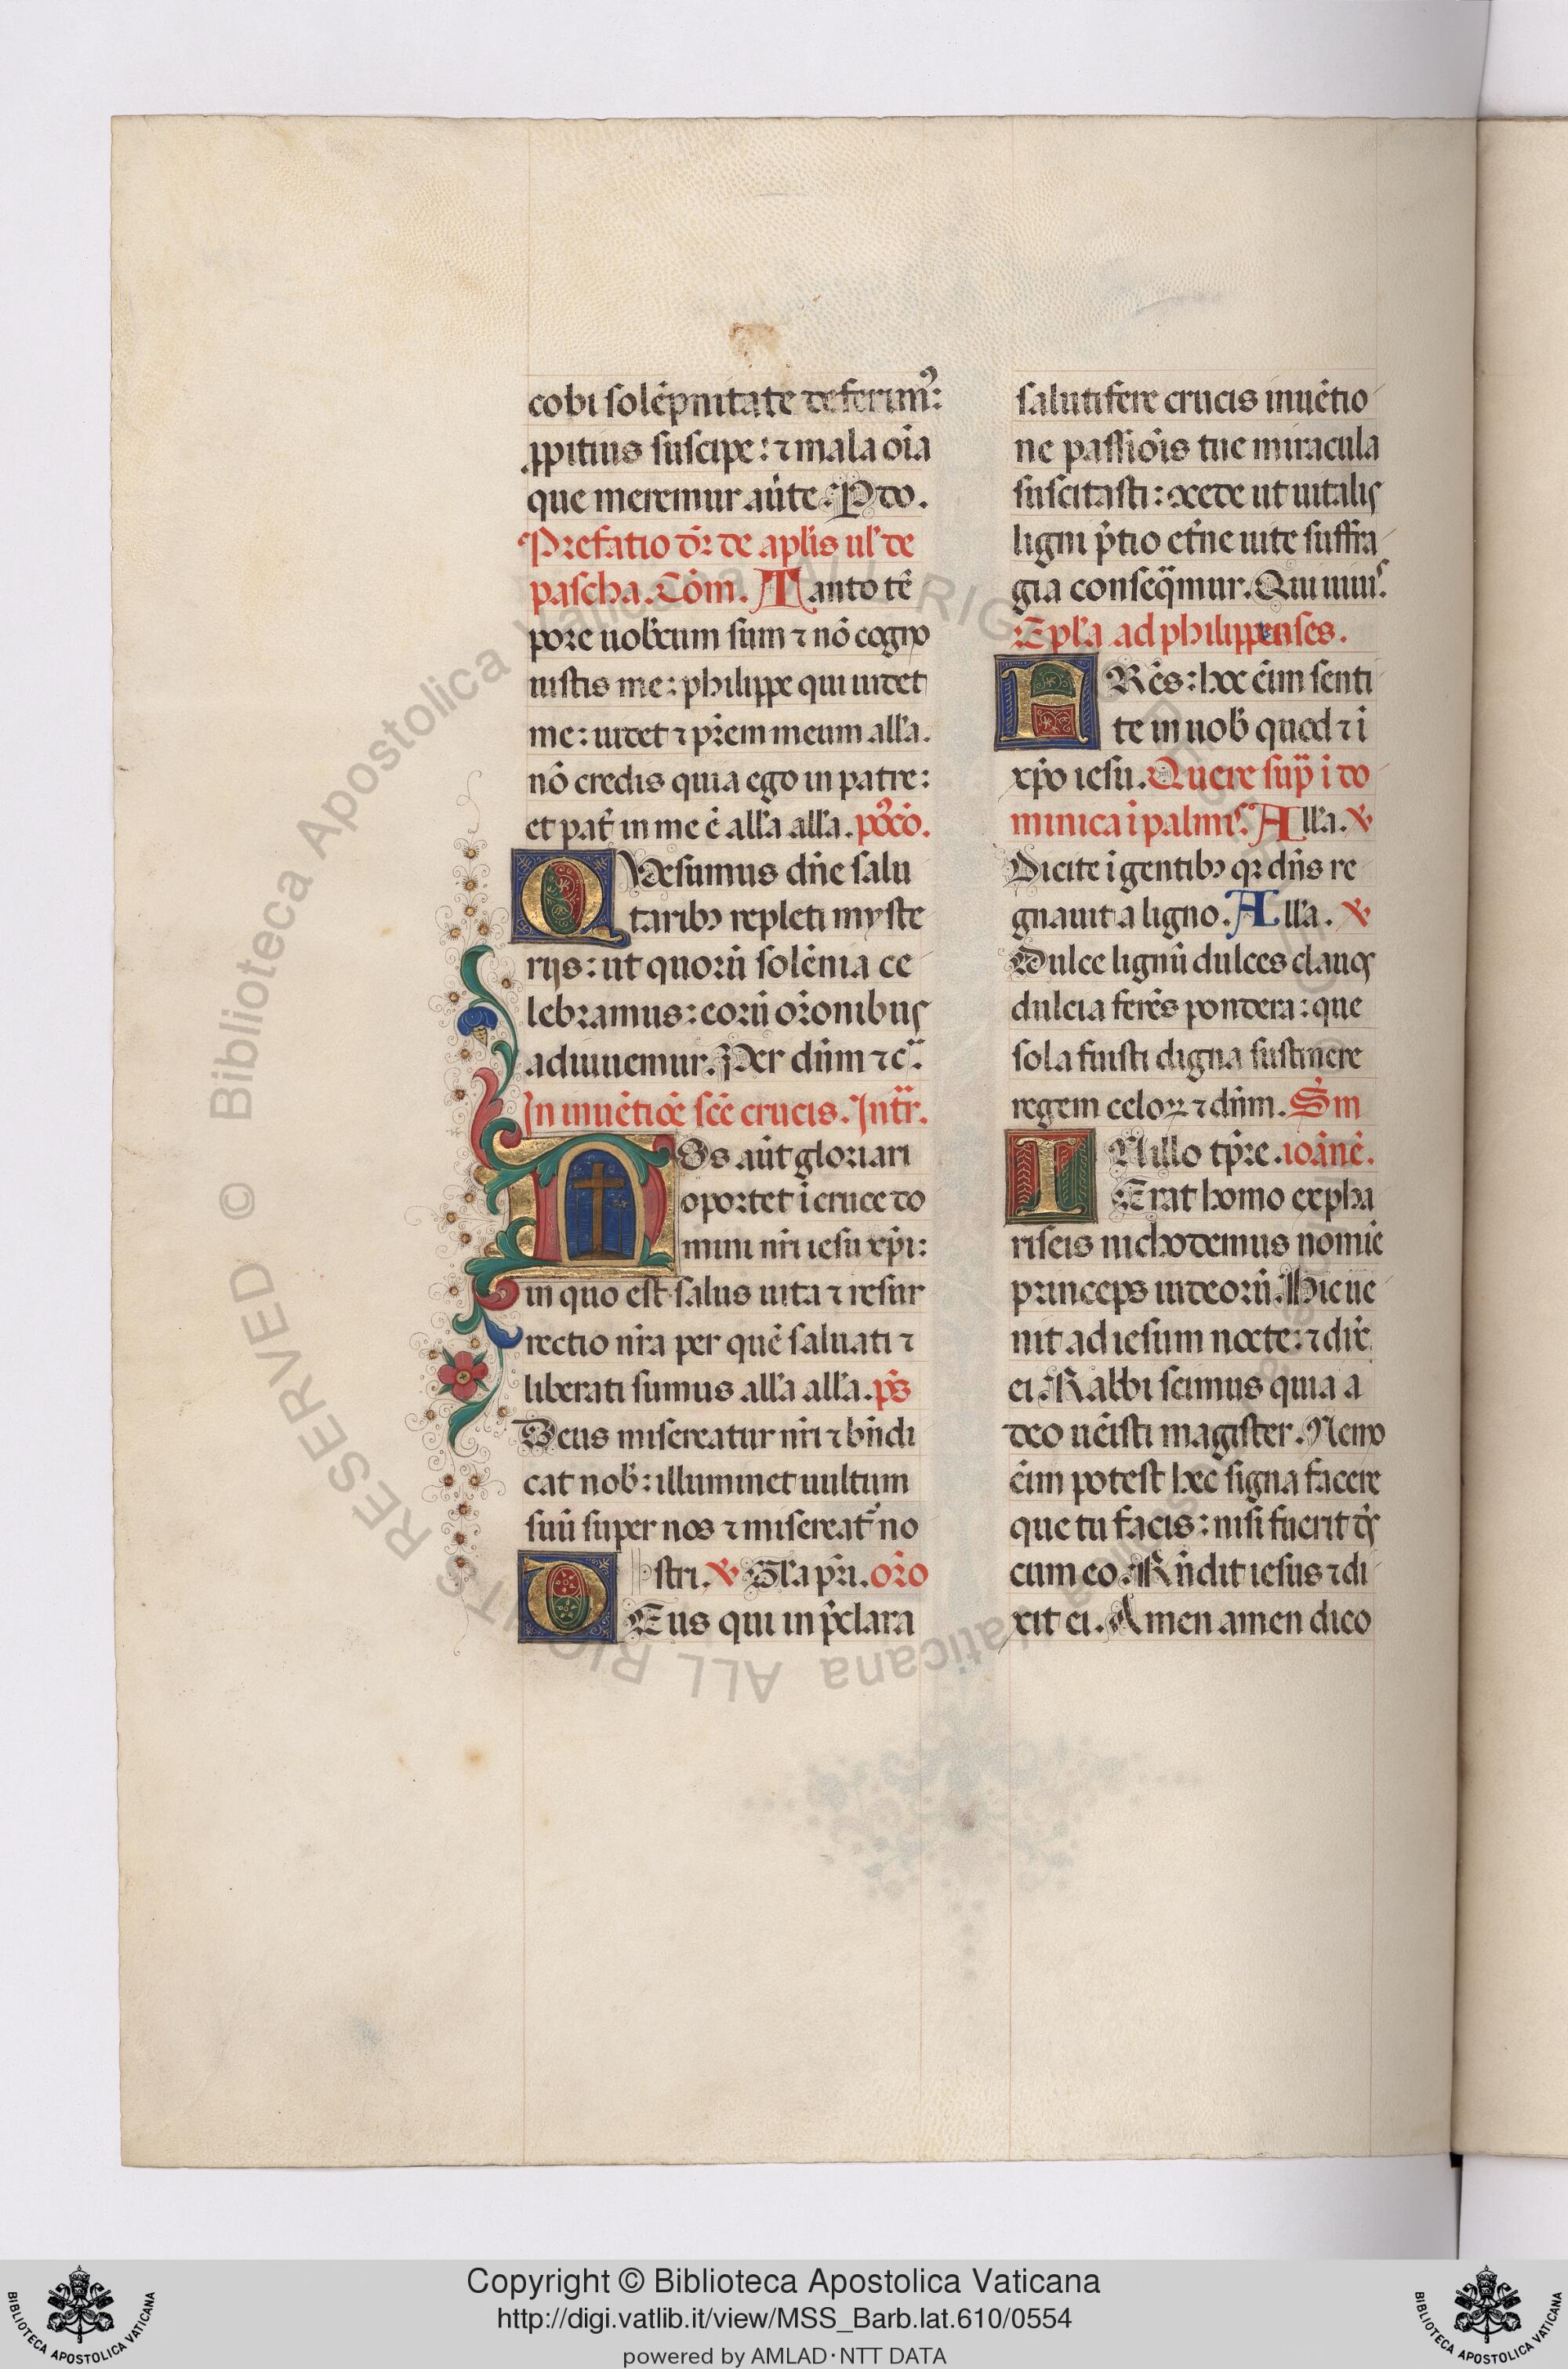 cobi solēpnitate deferim⁹:
ꝓpitius suscipe: ⁊ mala oīa
que meremur aūte. P do.
Prefatio dr̄ de aplīs ul' de
pascha. Cōm. Tanto tē
pore uob̄cum sum ⁊ nō cogno
uistis me: philippe qui uidet
me: uidet ⁊ pr̄em meum all'a.
nō credis quia ego in patre:
et pat̄ in me ē all'a all'a. po⁹cō.
QVesumus dn̄e salu
taribꝫ repleti myste
rijs: ut quorū solēnia ce
lebramus: eorū or̄onibus
adiuuemur. Per dn̄m ⁊c̄.
In inuētiōe sc̄e crucis. Intr̄.
NOs aūt gloriari
oportet ī cruce do
mini nr̄i iesu xp̄i:
in quo est salus uita ⁊ resur
rectio nr̄a per quē saluati ⁊
liberati sumus all'a all'a. p̄s
Deus misereatur nr̄i ⁊ bn̄di
cat nob̄: illuminet uultum
suū super nos ⁊ misereat̄ no
stri. ℣ Gl'a pr̄i. or̄o
DEus qui in p̄clara
salutifere crucis inuētio
ne passiōis tue miracula
suscitasti: ɔcede ut uitalis
ligni p̄tio et̄ne uite suffra
gia conseq̄mur. Qui uiuis.
Epl'a ad philippenses.
FRēs: hoc eīm senti
te in uob̄ quod ⁊ ī
xp̄o iesu. Quere sup̄ ī do
minica ī palmis. All'a. ℣
Dicite ī gentibꝫ qꝛ dn̄s re
gnauit a ligno. All'a. ℣
Dulce lignū dulces clauos
dulcia ferēs pondera: que
sola fuisti digna sustinere
regem celoꝝ ⁊ dn̄m. Sm̄
IN illo tp̄re. ioānē.
Erat homo ex pha
riseis nichodemus nomīe
princeps iudeorū. Hic ue
nit ad iesum nocte: ⁊ dix̄
ei. Rabbi scimus quia a
deo uēisti magister. Nemo
eīm potest hec signa facere
que tu facis: nisi fuerit d̄s
cum eo. Rn̄dit iesus ⁊ di
xit ei. Amen amen dico
© Biblioteca Apostolica Vaticana ALL RIGHTS RESERVED
Copyright © Biblioteca Apostolica Vaticana
http://digi.vatlib.it/view/MSS_Barb.lat.610/0554
powered by AMLAD·NTT DATA
BIBLIOTECA APOSTOLICA VATICANA
BIBLIOTECA APOSTOLICA VATICANA